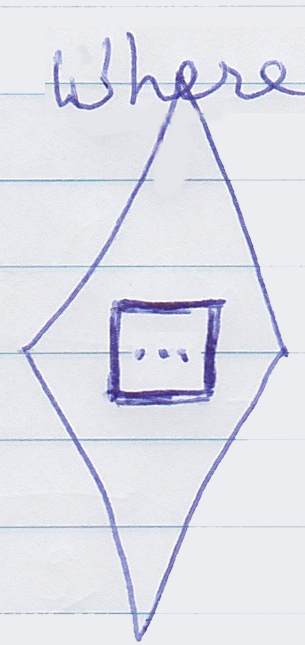 Where
...